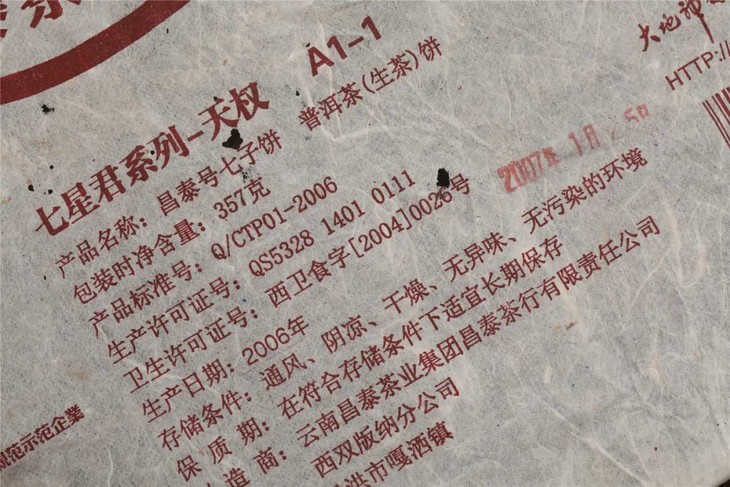 七星君系列-天权 A1-1
产品名称：昌泰号七子饼 普洱茶(生茶)饼
包装时净含量：357克
产品标准号：Q/CTP01-2006
生产许可证号：QS5328 1401 0111
卫生许可证号：西卫食字[2004]0026号
生产日期：2006年
2007年1月 5日
存储条件：通风、阴凉、干燥、无异味、无污染的环境
保质期：在符合存储条件下适宜长期保存
造商：云南昌泰茶业集团昌泰茶行有限责任公司
西双版纳分公司
洪市嘎洒镇
大地
HTTP:/
规范示范企業